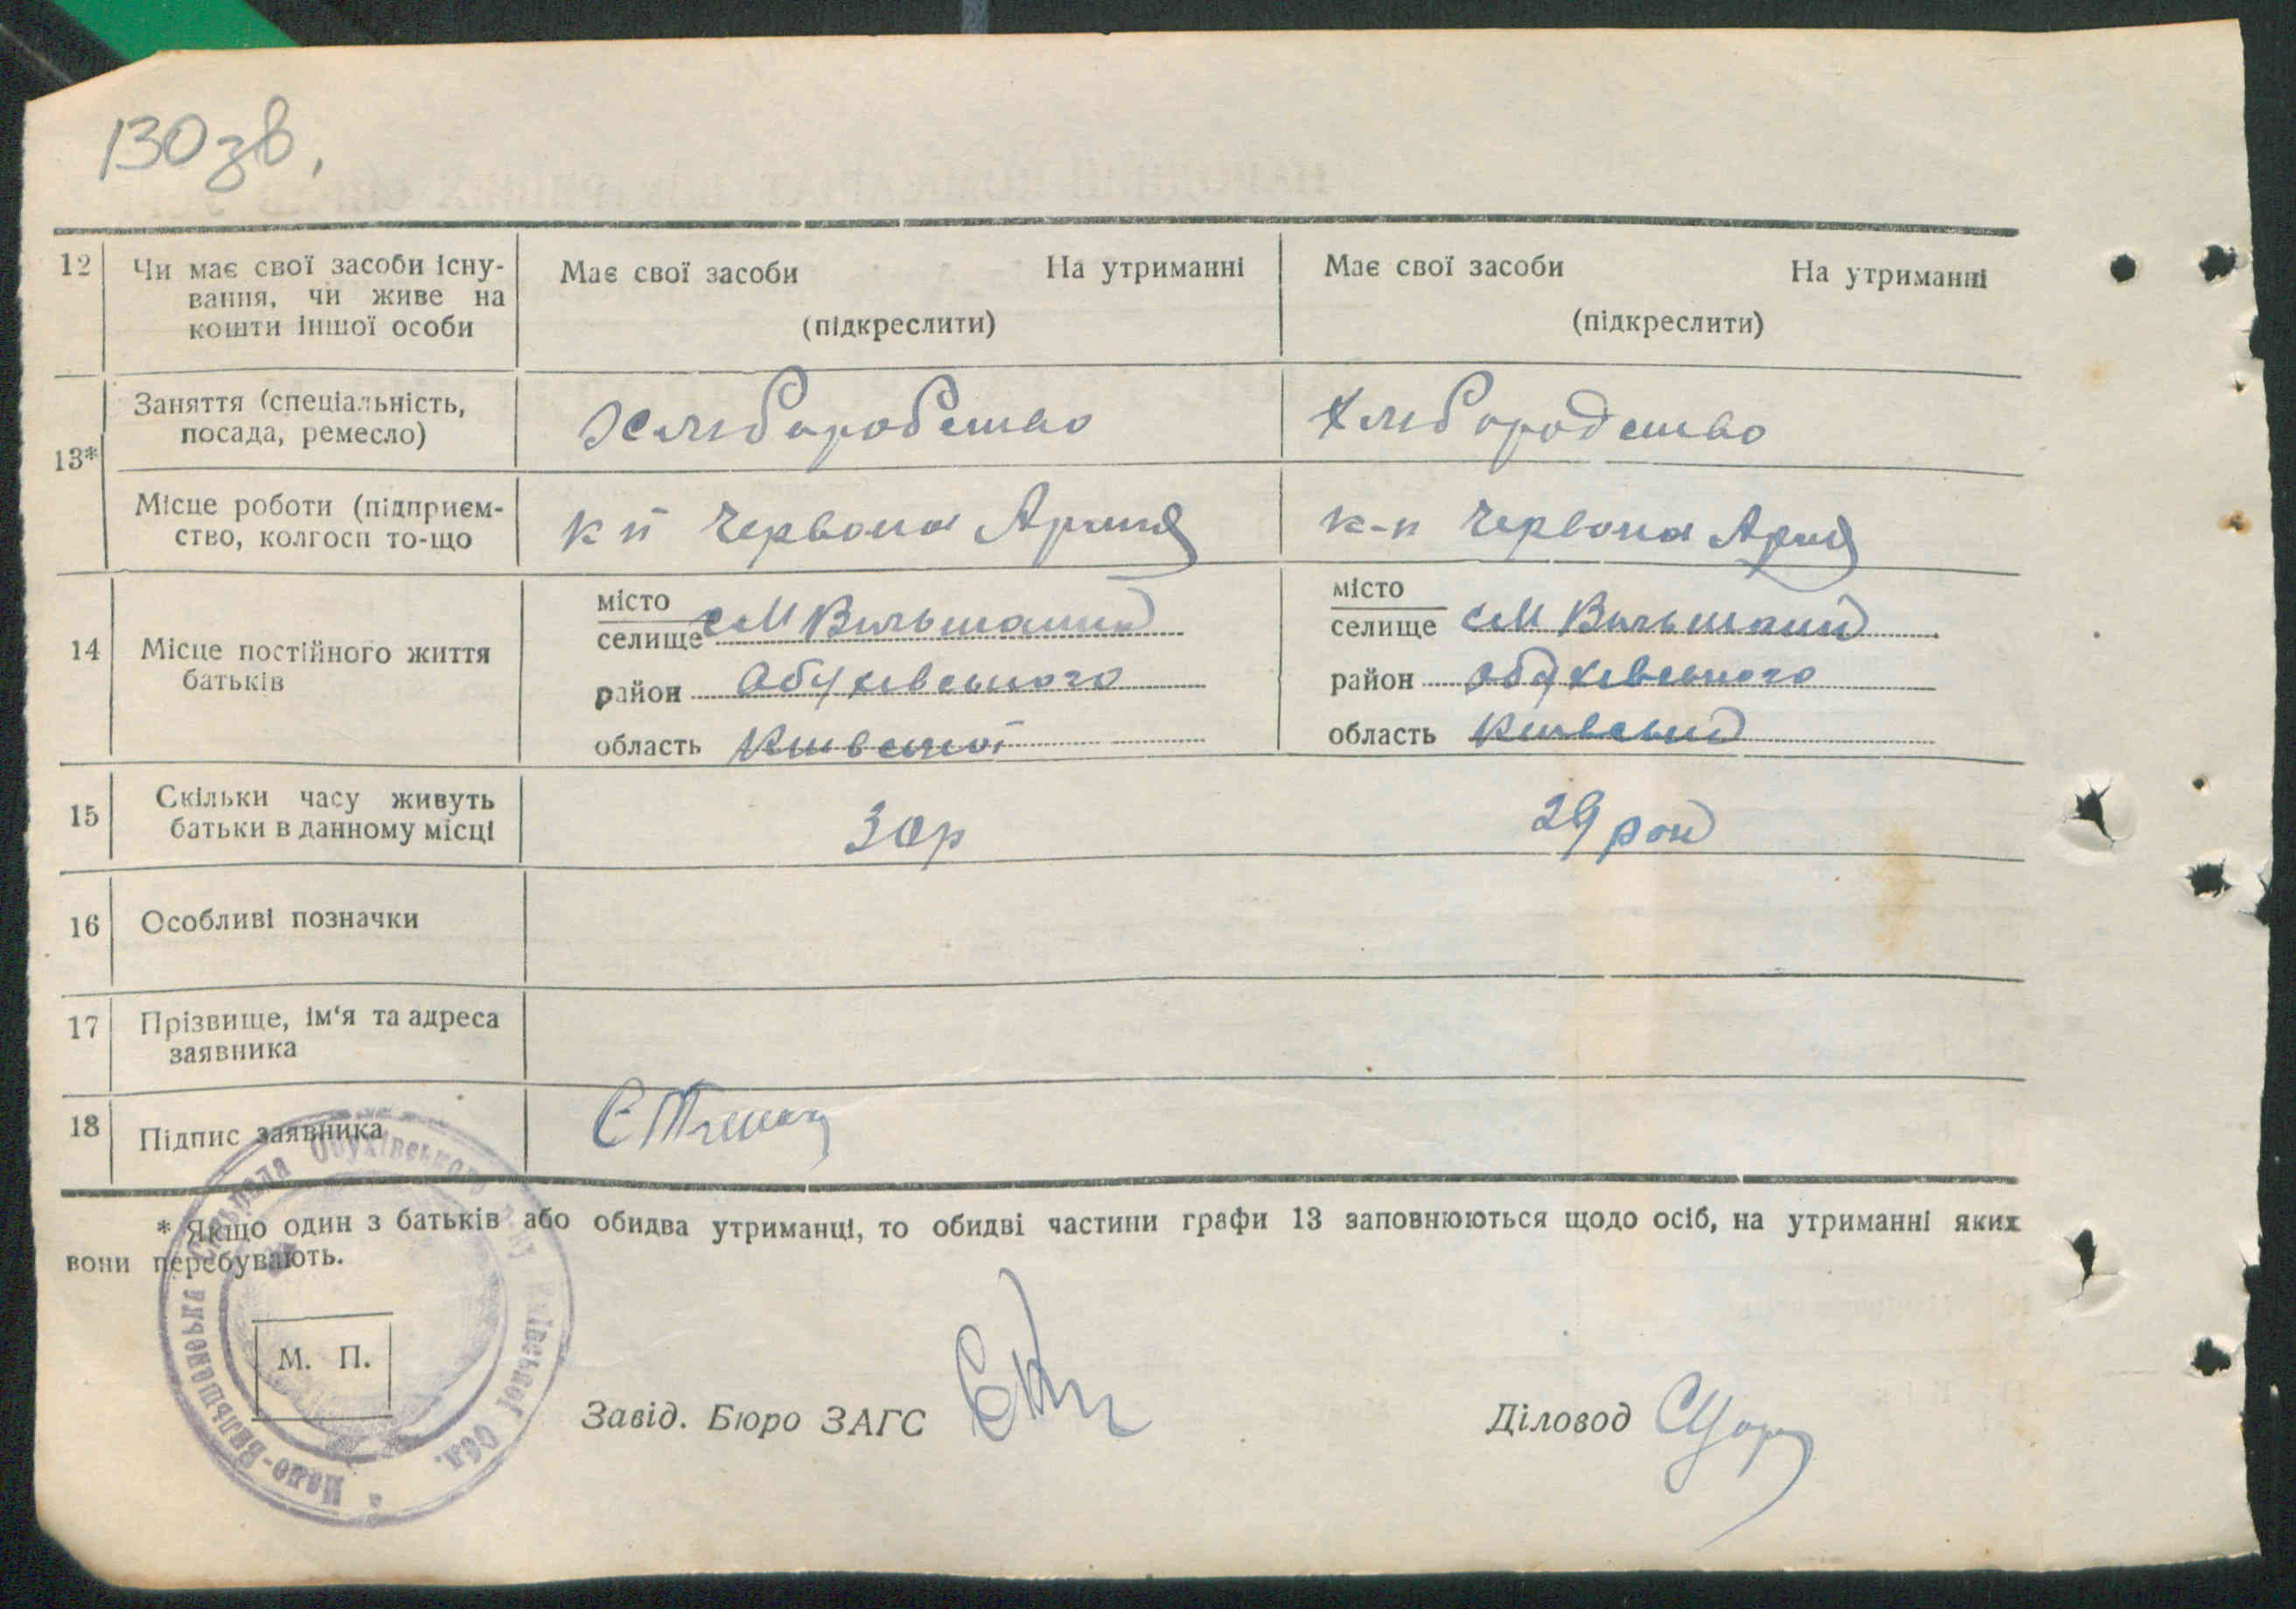 130 зв.
12 Чи має свої засоби існу-
вання, чи живе на
кошти іншої особи
Має свої засоби На утриманні
(підкреслити)
Має свої засоби На утриманні
(підкреслити)
13*
Заняття (спеціальність,
посада, ремесло)
Хліборобство
Хліборобство
Місце роботи (підприєм-
ство, колгосп то-що
к п Червона Армія
к-п Червона Армія
14 Місце постійного життя
батьків
місто
селище с М Вильшанка
район Обухівського
область Київської
місто
селище с М Вильшанка
район Обухівського
область Київської
15 Скільки часу живуть
батьки в данному місці
30 р
29 рок
16 Особливі позначки
17 Прізвище, ім'я та адреса
заявника
18 Підпис заявника
* Якщо один з батьків або обидва утриманці, то обидві частини графи 13 заповнюються щодо осіб, на утриманні яких
вони перебувають.
М. П.
Мало-Вильшанська Сільрада Обухівського р-ну Київської Обл.
Завід. Бюро ЗАГС
Діловод